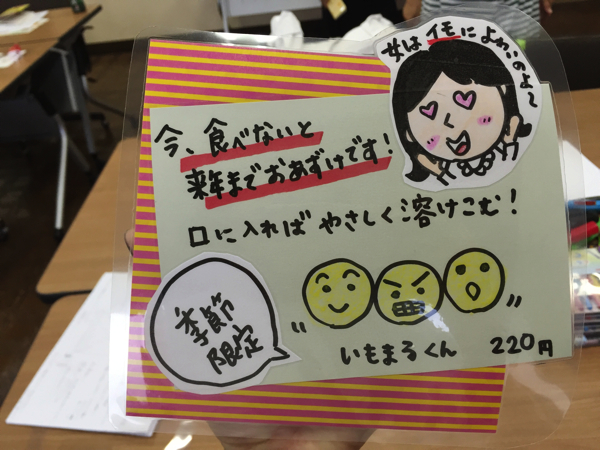 女はイモによわいのよ～
今、食べないと
来年までおあずけです!
口に入れば やさしく溶けこむ!
季節
限定
いもまろくん
220円